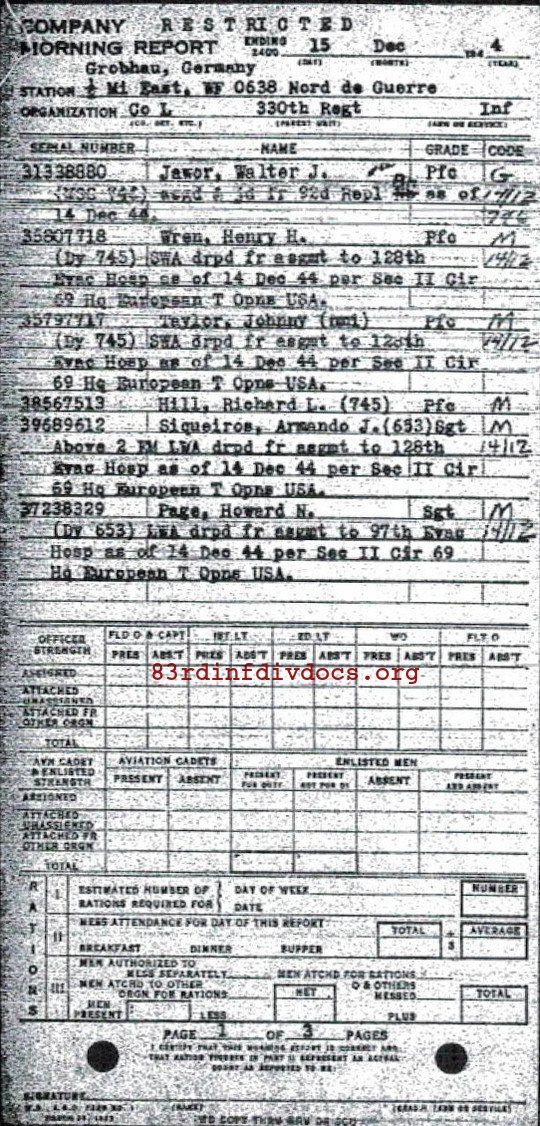 COMPANY RESTRICTED
MORNING REPORT ENDING 2400 15 Dec 194 4
(DAY) (MONTH) (YEAR)
Grobhau, Germany
STATION ½ Mi East, WF 0638 Nord de Guerre
ORGANIZATION Co L 330th Regt Inf
(CO. DET. ETC.) (PARENT UNIT) (ARM OR SERVICE)
SERIAL NUMBER NAME GRADE CODE
31338880 Jawor, Walter J. Pfc G
asgd & jd fr 92d Repl as of 14/12
14 Dec 44. 746
35807718 Wren, Henry H. Pfc M
(Dy 745) SWA drpd fr asgmt to 128th 14/12
Evac Hosp as of 14 Dec 44 per Sec II Cir
69 Hq European T Opns USA.
35797717 Taylor, Johnny (nmi) Pfc M
(Dy 745) SWA drpd fr asgmt to 128th 14/12
Evac Hosp as of 14 Dec 44 per Sec II Cir
69 Hq European T Opns USA.
38567513 Hill, Richard L. (745) Pfc M
39689612 Siqueiros, Armando J.(653)Sgt M
Above 2 EM LWA drpd fr asgmt to 128th 14/12
Evac Hosp as of 14 Dec 44 per Sec II Cir
69 Hq European T Opns USA.
37238329 Page, Howard N. Sgt M
(Dy 653) LWA drpd fr asgmt to 97th Evac 14/12
Hosp as of 14 Dec 44 per Sec II Cir 69
Hq European T Opns USA.
OFFICER STRENGTH FLD O & CAPT 1ST LT 2D LT WO FLT O
PRES ABS'T PRES ABS'T PRES ABS'T PRES ABS'T PRES ABS'T
83rdinfdivdocs.org
ASSIGNED
ATTACHED UNASSIGNED
ATTACHED FR OTHER ORGN
TOTAL
AVN CADET & ENLISTED STRENGTH AVIATION CADETS ENLISTED MEN
PRESENT ABSENT PRESENT FOR DUTY PRESENT NOT FOR DY ABSENT PRESENT AND ABSENT
ASSIGNED
ATTACHED UNASSIGNED
ATTACHED FR OTHER ORGN
TOTAL
RATIONS
I ESTIMATED NUMBER OF RATIONS REQUIRED FOR DAY OF WEEK DATE NUMBER
II MESS ATTENDANCE FOR DAY OF THIS REPORT TOTAL ÷ 3 AVERAGE
BREAKFAST DINNER SUPPER
III MEN AUTHORIZED TO MESS SEPARATELY MEN ATCHD FOR RATIONS
MEN ATCHD TO OTHER ORGN FOR RATIONS NET O & OTHERS MESSED TOTAL
MEN PRESENT LESS PLUS
PAGE 1 OF 3 PAGES
I CERTIFY THAT THIS MORNING REPORT IS CORRECT AND
THAT RATION FIGURES IN PART II REPRESENT AN ACTUAL
COUNT AS REPORTED TO ME:
SIGNATURE
W.D., A.G.O. FORM NO. 1 (NAME) (GRADE & ARM OR SERVICE)